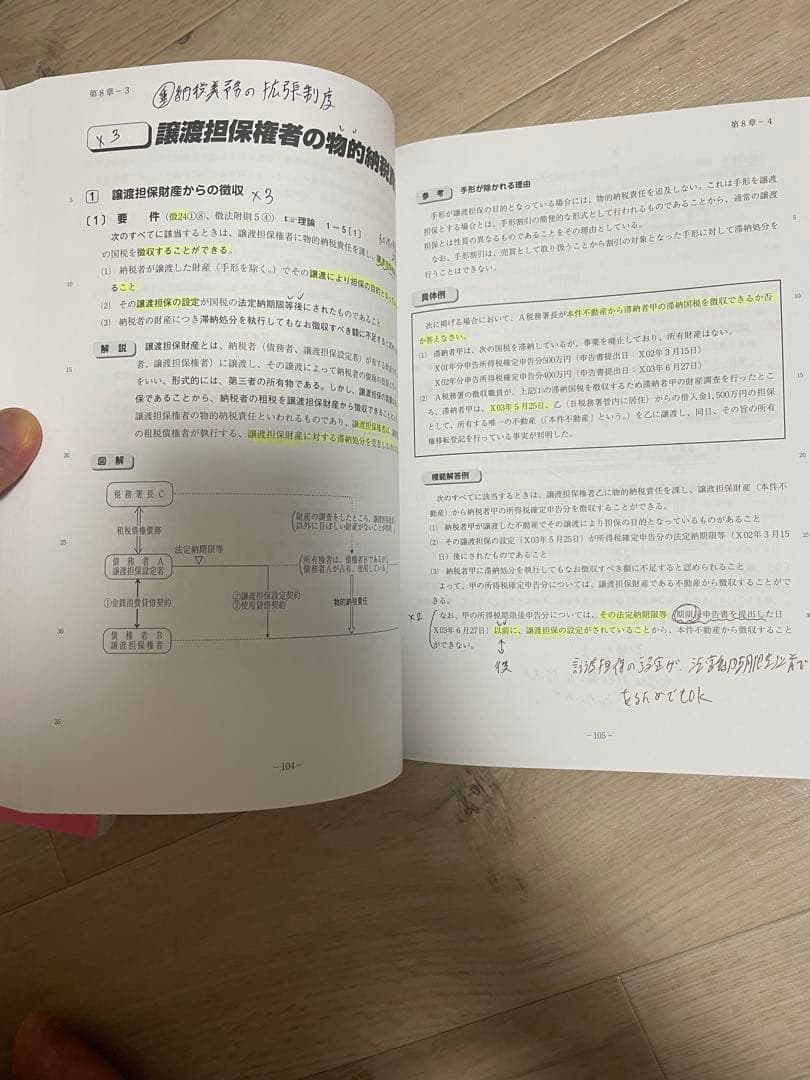 第8章−3
納税義務の拡張制度
×3
譲渡担保権者の物的納税責
1 譲渡担保財産からの徴収 ×3
〔1〕 要 件 (徴24①⑧、徴法附則5④) ☞理論 1−5[1]
次のすべてに該当するときは、譲渡担保権者に物的納税責任を課し、
の国税を徴収することができる。
(1) 納税者が譲渡した財産(手形を除く。)でその譲渡により担保の目的となってい
ること
(2) その譲渡担保の設定が国税の法定納期限等後にされたものであること
(3) 納税者の財産につき滞納処分を執行してもなお徴収すべき額に不足すると認め
解 説
譲渡担保財産とは、納税者(債務者、譲渡担保設定者)が有する財産
者、譲渡担保権者)に譲渡し、その譲渡によって納税者の債務の担保
をいい、形式的には、第三者の所有物である。しかし、譲渡担保の実質
保であることから、納税者の租税を譲渡担保財産から徴収できること
譲渡担保権者の物的納税責任といわれるものであり、譲渡担保権者は、
の租税債権者が執行する、譲渡担保財産に対する滞納処分を受忍しな
図 解
税務署長C
租税債権債務
(財産の調査をしたところ、譲渡担保財産
以外に目ぼしい財産がないことが判明)
債務者A
譲渡担保設定者
法定納期限等
(所有権者は、債権者Bであるが
債務者Aが占有、使用している)
①金銭消費貸借契約
②譲渡担保設定契約
③使用貸借契約
物的納税責任
債権者B
譲渡担保権者
−104−
第8章−4
参 考 手形が除かれる理由
手形が譲渡担保の目的となっている場合には、物的納税責任を追及しない。これは手形を譲渡
担保とする場合とは、手形割引の簡便的な形式として行われるものであることから、通常の譲渡
担保とは性質の異なるものであることをその理由としている。
なお、手形割引は、売買として取り扱うことから割引の対象となった手形に対して滞納処分を
行うことはできない。
具体例
次に掲げる場合において、A税務署長が本件不動産から滞納者甲の滞納国税を徴収できるか否
か答えなさい。
(1) 滞納者甲は、次の国税を滞納しているが、事業を廃止しており、所有財産はない。
X01年分申告所得税確定申告分500万円(申告書提出日:X02年3月15日)
X02年分申告所得税確定申告分400万円(申告書提出日:X03年6月27日)
(2) A税務署の徴収職員が、上記(1)の滞納国税を徴収するため滞納者甲の財産調査を行ったとこ
ろ、滞納者甲は、X03年5月25日、乙(B税務署管内に居住)からの借入金1,500万円の担保
として、所有する唯一の不動産(「本件不動産」という。)を乙に譲渡し、同日、その旨の所有
権移転登記を行っている事実が判明した。
模範解答例
次のすべてに該当するときは、譲渡担保権者乙に物的納税責任を課し、譲渡担保財産(本件不
動産)から納税者甲の所得税確定申告分を徴収することができる。
(1) 納税者甲が譲渡した不動産でその譲渡により担保の目的となっているものがあること
(2) その譲渡担保の設定(X03年5月25日)が所得税確定申告分の法定納期限等(X02年3月15
日)後にされたものであること
(3) 納税者甲に滞納処分を執行してもなお徴収すべき額に不足すると認められること
よって、甲の所得税確定申告分については、譲渡担保財産である不動産から徴収することがで
きる。
×2
なお、甲の所得税期限後申告分については、その法定納期限等(期限後申告書を提出した日
X03年6月27日)以前に、譲渡担保の設定がされていることから、本件不動産から徴収すること
ができない。
後
譲渡担保の設定が、法定納期限等以前で
あるんでもOK
−105−
5
10
15
20
25
30
35
10
15
20
25
30